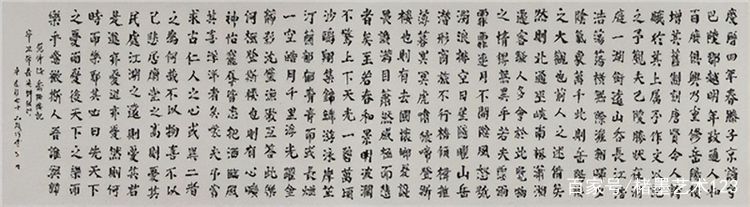 慶曆四年春滕子京謫守
巴陵郡越明年政通人和
百廢俱興乃重修岳陽樓
增其舊制刻唐賢今人詩
賦於其上屬予作文以記
之予觀夫巴陵勝狀在洞
庭一湖銜遠山吞長江浩
浩湯湯橫無際涯朝暉夕
陰氣象萬千此則岳陽樓
之大觀也前人之述備矣
然則北通巫峽南極瀟湘
遷客騷人多會於此覽物
之情得無異乎若夫霪雨
霏霏連月不開陰風怒號
濁浪排空日星隱曜山岳
潛形商旅不行檣傾楫摧
薄暮冥冥虎嘯猿啼登斯
樓也則有去國懷鄉憂讒
畏譏滿目蕭然感極而悲
者矣至若春和景明波瀾
不驚上下天光一碧萬頃
沙鷗翔集錦鱗游泳岸芷
汀蘭郁郁青青而或長煙
一空皓月千里浮光躍金
靜影沉璧漁歌互答此樂
何極登斯樓也則有心曠
神怡寵辱皆忘把酒臨風
其喜洋洋者矣嗟夫予嘗
求古仁人之心或異二者
之為何哉不以物喜不以
己悲居廟堂之高則憂其
民處江湖之遠則憂其君
是進亦憂退亦憂然則何
時而樂耶其必曰先天下
之憂而憂後天下之樂而
樂乎噫微斯人吾誰與歸
范仲淹岳陽樓記
百家号/楮墨艺术123